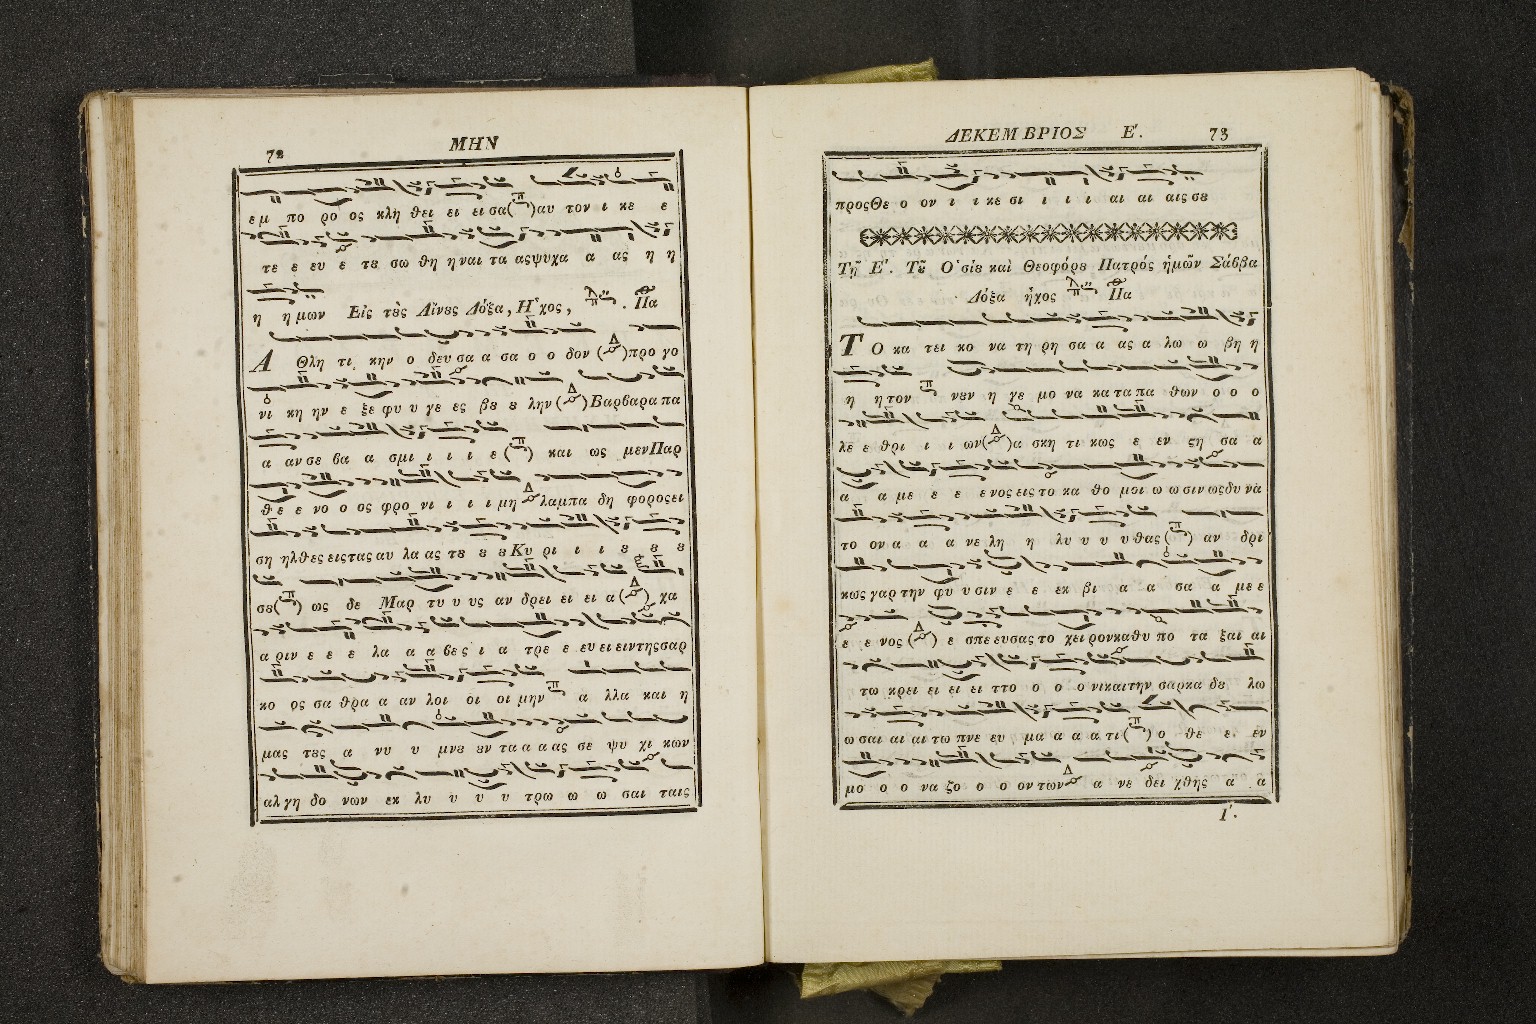 72 ΜΗΝ
εμ πο ρο ος κλη θει ει ει σα(π)αυ τον ι κε ε
τε ε ευ ε τȣ σω θη η ναι τα ας ψυχα α ας η η
η ημων Εἰς τὲς Αἴνȣς Δόξα, Ἦχος, Πα
Α Θλη τι κην ο δευ σα α σα ο ο δον (Δ)προ γο
νι κη ην ε ξε φυ υ γε ες βȣ ȣ λην(Δ)Βαρβαρα πα
α αν σε βα α σμι ι ι ι ε(π) και ως μεν Παρ
θε ε νο ο ος φρο νι ι ι ι μη Δ λαμπα δη φορος ει
ση ηλθες εις τας αυ λα ας τȣ ȣ ȣ Κυ ρι ι ι ȣ ȣ ȣ
σȣ(π) ως δε Μαρ τυ υ υς αν δρει ει ει α(Δ) χα
α ριν ε ε ε λα α α βες ι α τρε ε ευ ει ειν της σαρ
κο ος σα θρα α αν λοι οι οι μην π α λλα και η
μας τȣς α νυ υ μνȣ ȣν τα α α ας σε ψυ χι κων
αλγη δο νων εκ λυ υ υ υ τρω ω ω σαι ταις
ΔΕΚΕΜΒΡΙΟΣ Ε΄. 73
προς Θε ο ον ι ι κε σι ι ι ι αι αι αις σȣ
Τῇ Ε΄. Τȣ͂ Ὁσίȣ καὶ Θεοφόρȣ Πατρός ἡμῶν Σάββα
Δόξα ἦχος Πα
Τ Ο κα τει κο να τη ρη σα α ας α λω ω βη η
η η τον π νȣν η γε μο να κα τα πα θων ο ο ο
λε ε θρι ι ι ων(Δ)α σκη τι κως ε εν ϛη σα α
α α με ε ε ε νος εις το κα θο μοι ω ω σιν ως δυ να
το ον α α α νε λη η λυ υ υ υ θας (π) αν δρι
κως γαρ την φυ υ σιν ε ε εκ βι α α σα α με ε
ε ε νος (Δ) ε σπε ευσας το χει ρον καθυ πο τα ξαι αι
τω κρει ει ει ει ττο ο ο ο νι και την σαρκα δȣ λω
ω σαι αι αι τω πνε ευ μα α α α τι(π) ο θε ε εν
μο ο ο να ζο ο ο ον των Δ α νε δει χθης α α
Ι΄.